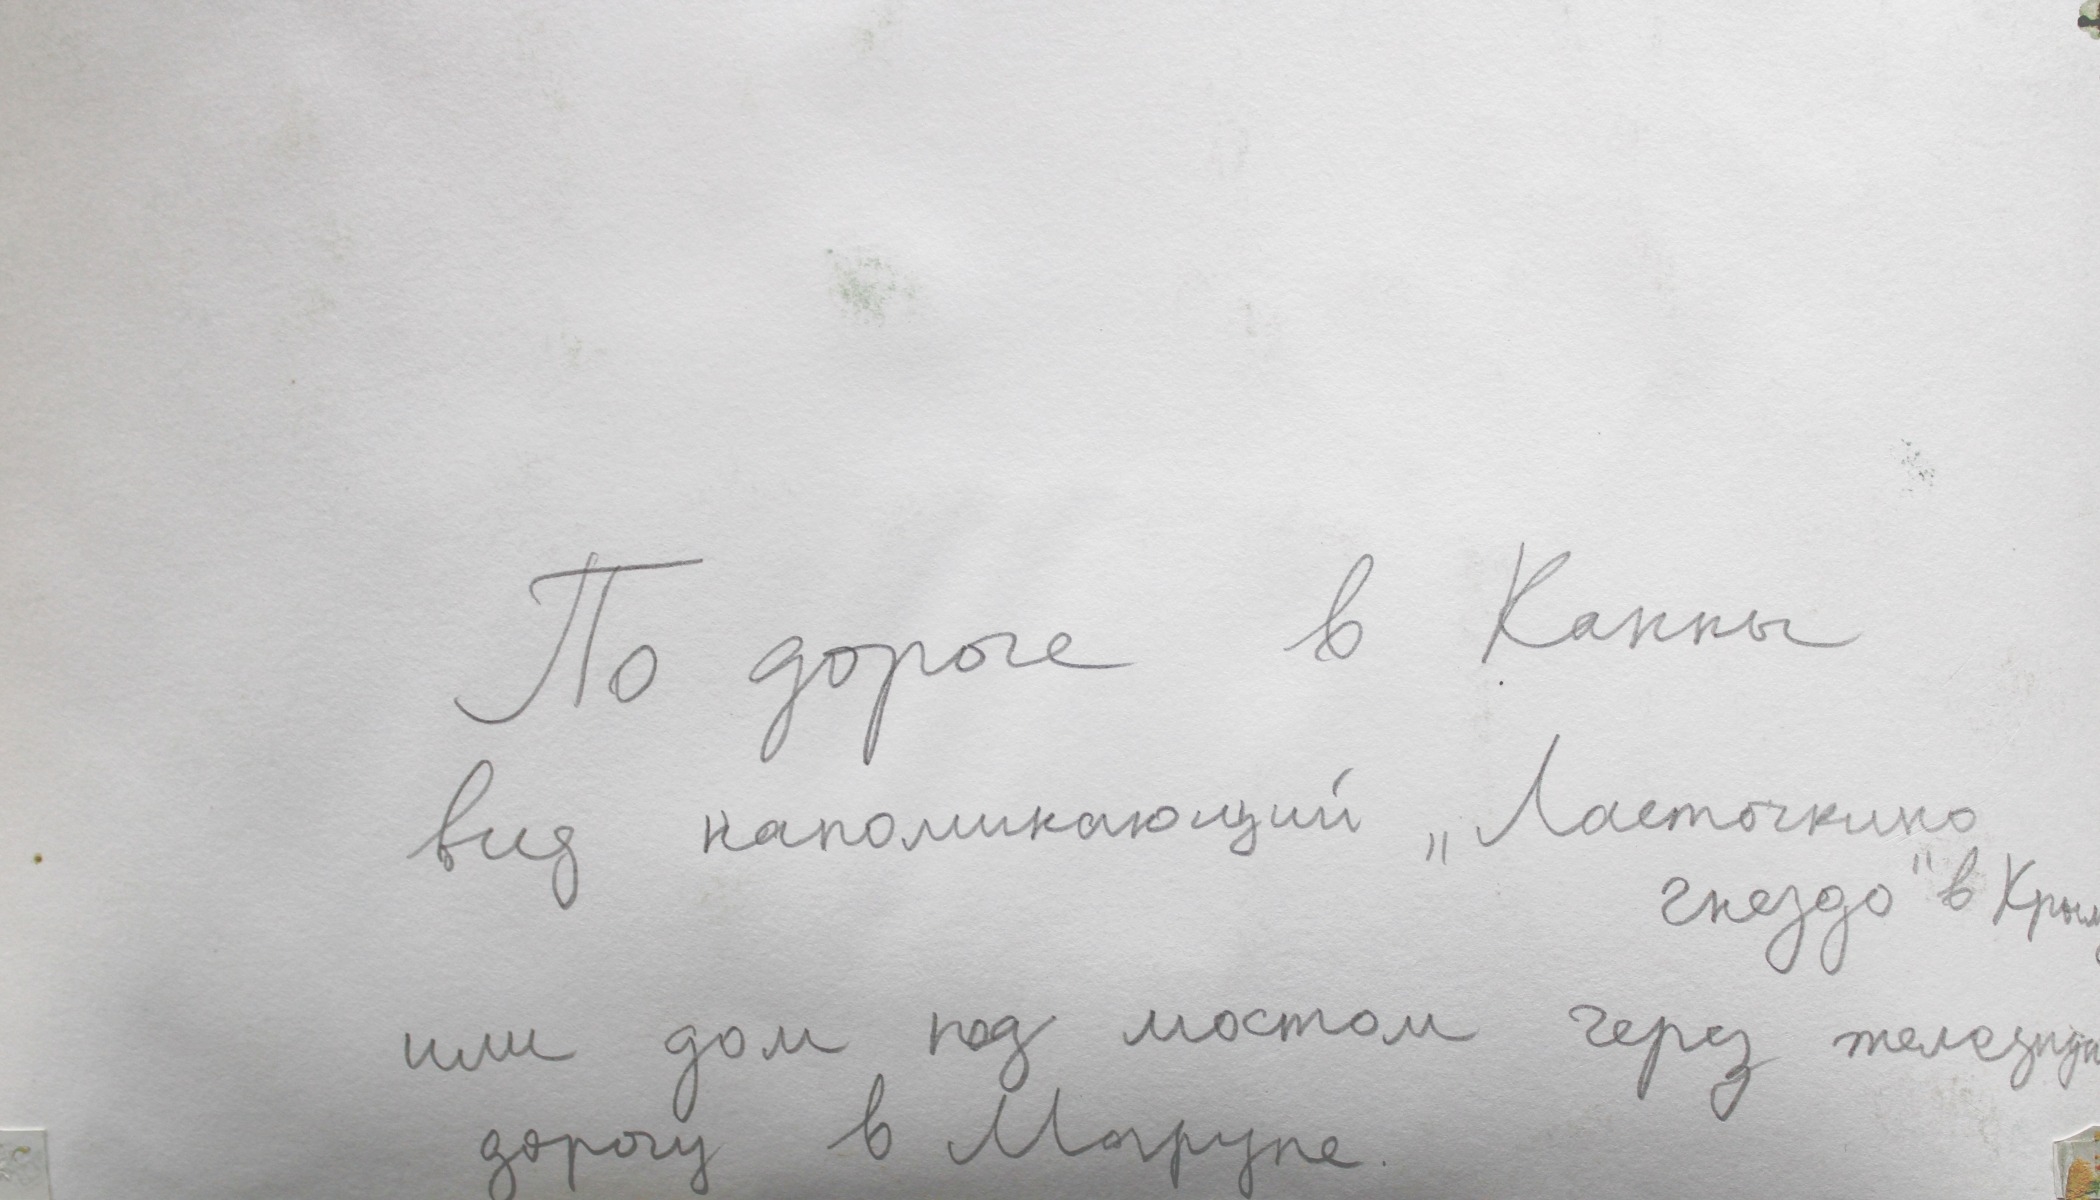 По дороге в Канны
вид напоминающий „Ласточкино
гнездо" в Крыму
или дом под мостом через железную
дорогу в Марупе.